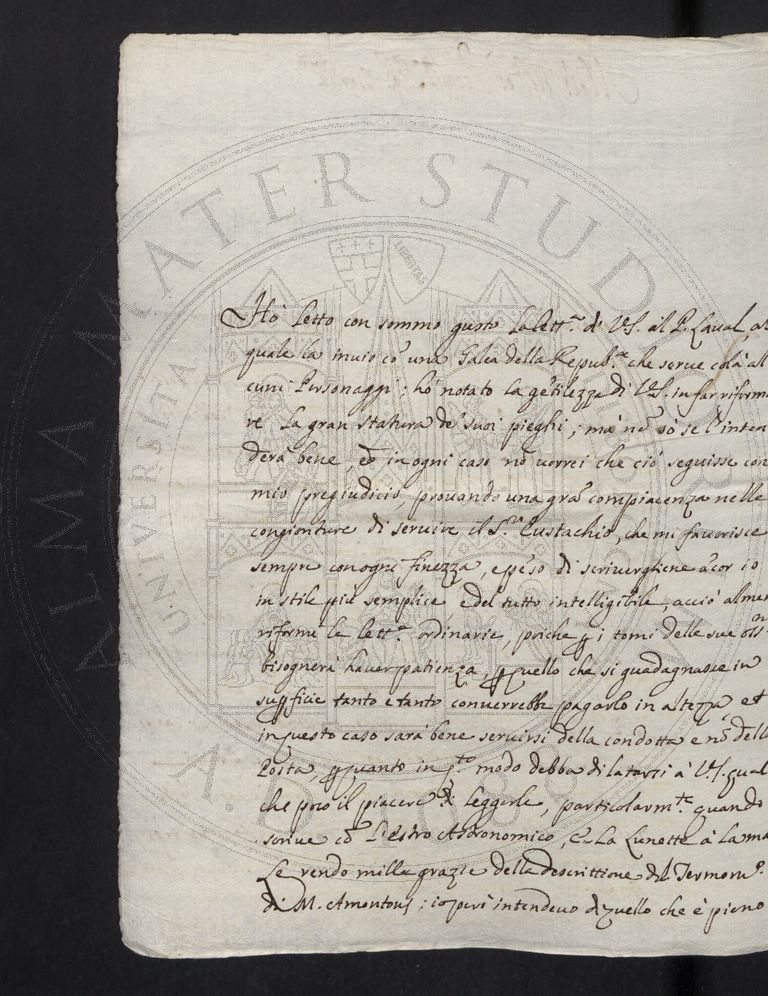 ALMA MATER STUD
UNIVERSITÀ
LIBERTAS
A.D. 1088
Hò letto con sommo gusto la lett.ª di V.S. al P. Laval, al
quale la inuio cõ una Galea della Repub.ca che serue colà al
cuni Personaggi; hò notato la gẽtilezza di V.S. in far riforma
re la gran statura de' suoi pieghi; mà nõ sò se l'inten
derà bene, et in ogni caso nõ uorrei che ciò seguisse con
mio pregiudicio, prouando una grã compiacenza nelle
congionture di seruire il S.r Eustachio, che mi fauorisce
sempre con ogni finezza, e peso di scriuergliene ãcor io
in stile più semplice e del tutto intelligibile, acciò almen
riformi le lett.e ordinarie, poiche p i tomi delle sue oss.ni
bisognerà hauer patienza, p quello che si guadagnasse in
supficie tanto e tanto conuerrebbe pagarlo in altezza et
in questo caso sarà bene seruirsi della condotta e nõ dell
Posta, p quanto in q.to modo debba dilatarsi à V.S. qual
che poco il piacere di leggerle, particolarm.te quando
scriue cõ l'estro Astronomico, e la Lunette à la ma
Le rendo mille grazie della descrittione del Termom.o
di M. Amontons; io però intendeuo di quello che è pieno